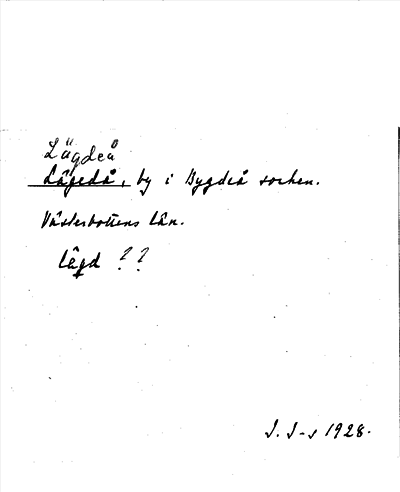 Lägdeå
Lägedå, by i Bygdeå socken.
Västerbottens län.
lägd ??
J. J-s 1928.